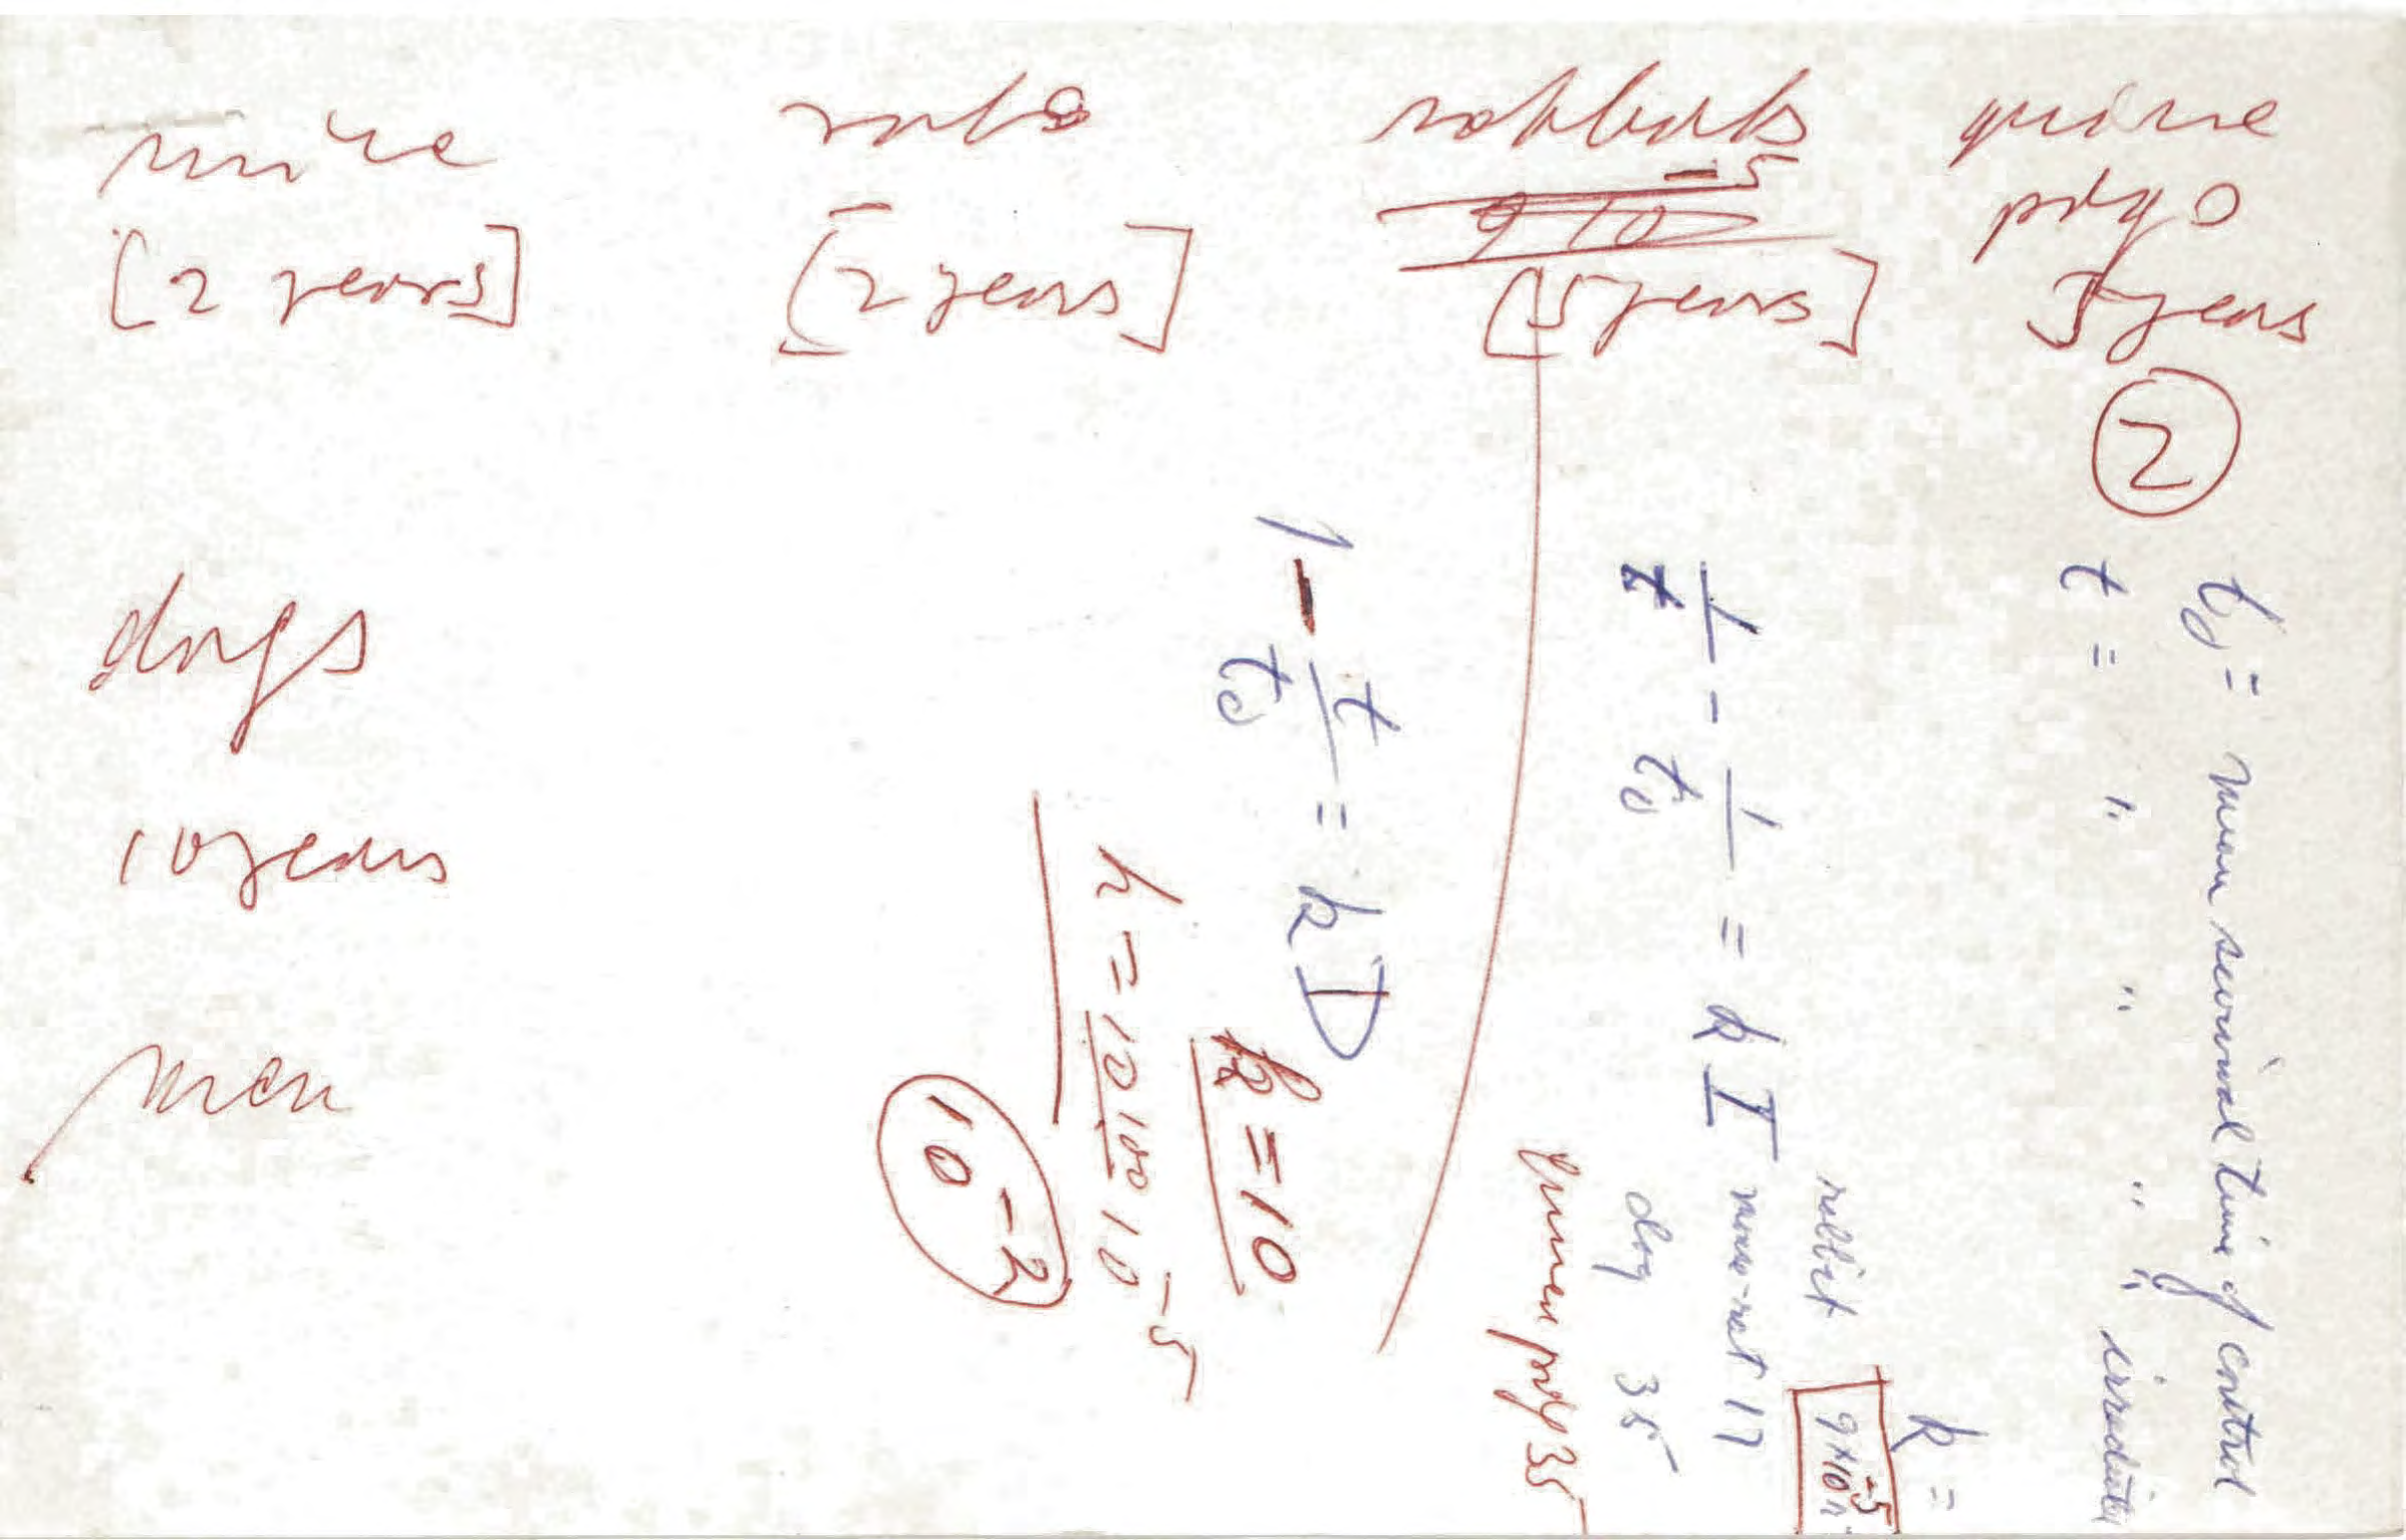 mice
[2 years]
rats
[2 years]
rabbits
9 10 -5
[5 years]
guinea
pigs
5 years
dogs
10 years
men
2
t₀ = mean survival time of control
t = " " " " irradiated
1/t - 1/t₀ = k I
k =
rabbit 9×10⁻⁵
mouse-rat 17
dog 35
guinea pig 35
1 - t/t₀ = k D
k = 10
k = 10 100 10⁻⁵
10⁻²